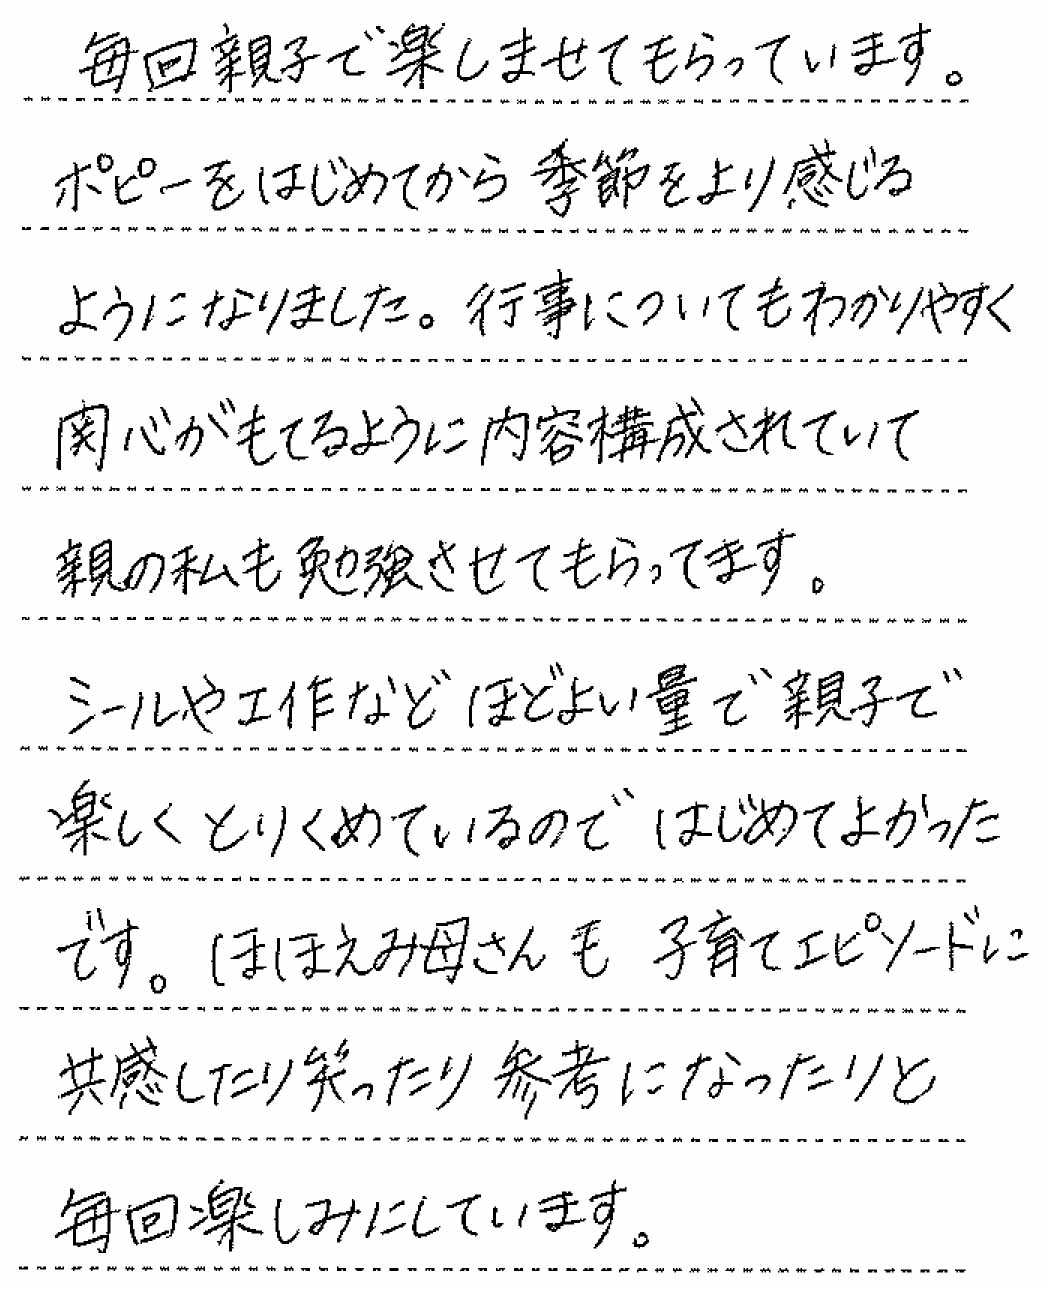 毎回親子で楽しませてもらっています。
ポピーをはじめてから季節をより感じる
ようになりました。行事についてもわかりやすく
関心がもてるように内容構成されていて
親の私も勉強させてもらってます。
シールや工作などほどよい量で親子で
楽しくとりくめているのではじめてよかった
です。ほほえみ母さんも子育てエピソードに
共感したり笑ったり参考になったりと
毎回楽しみにしています。